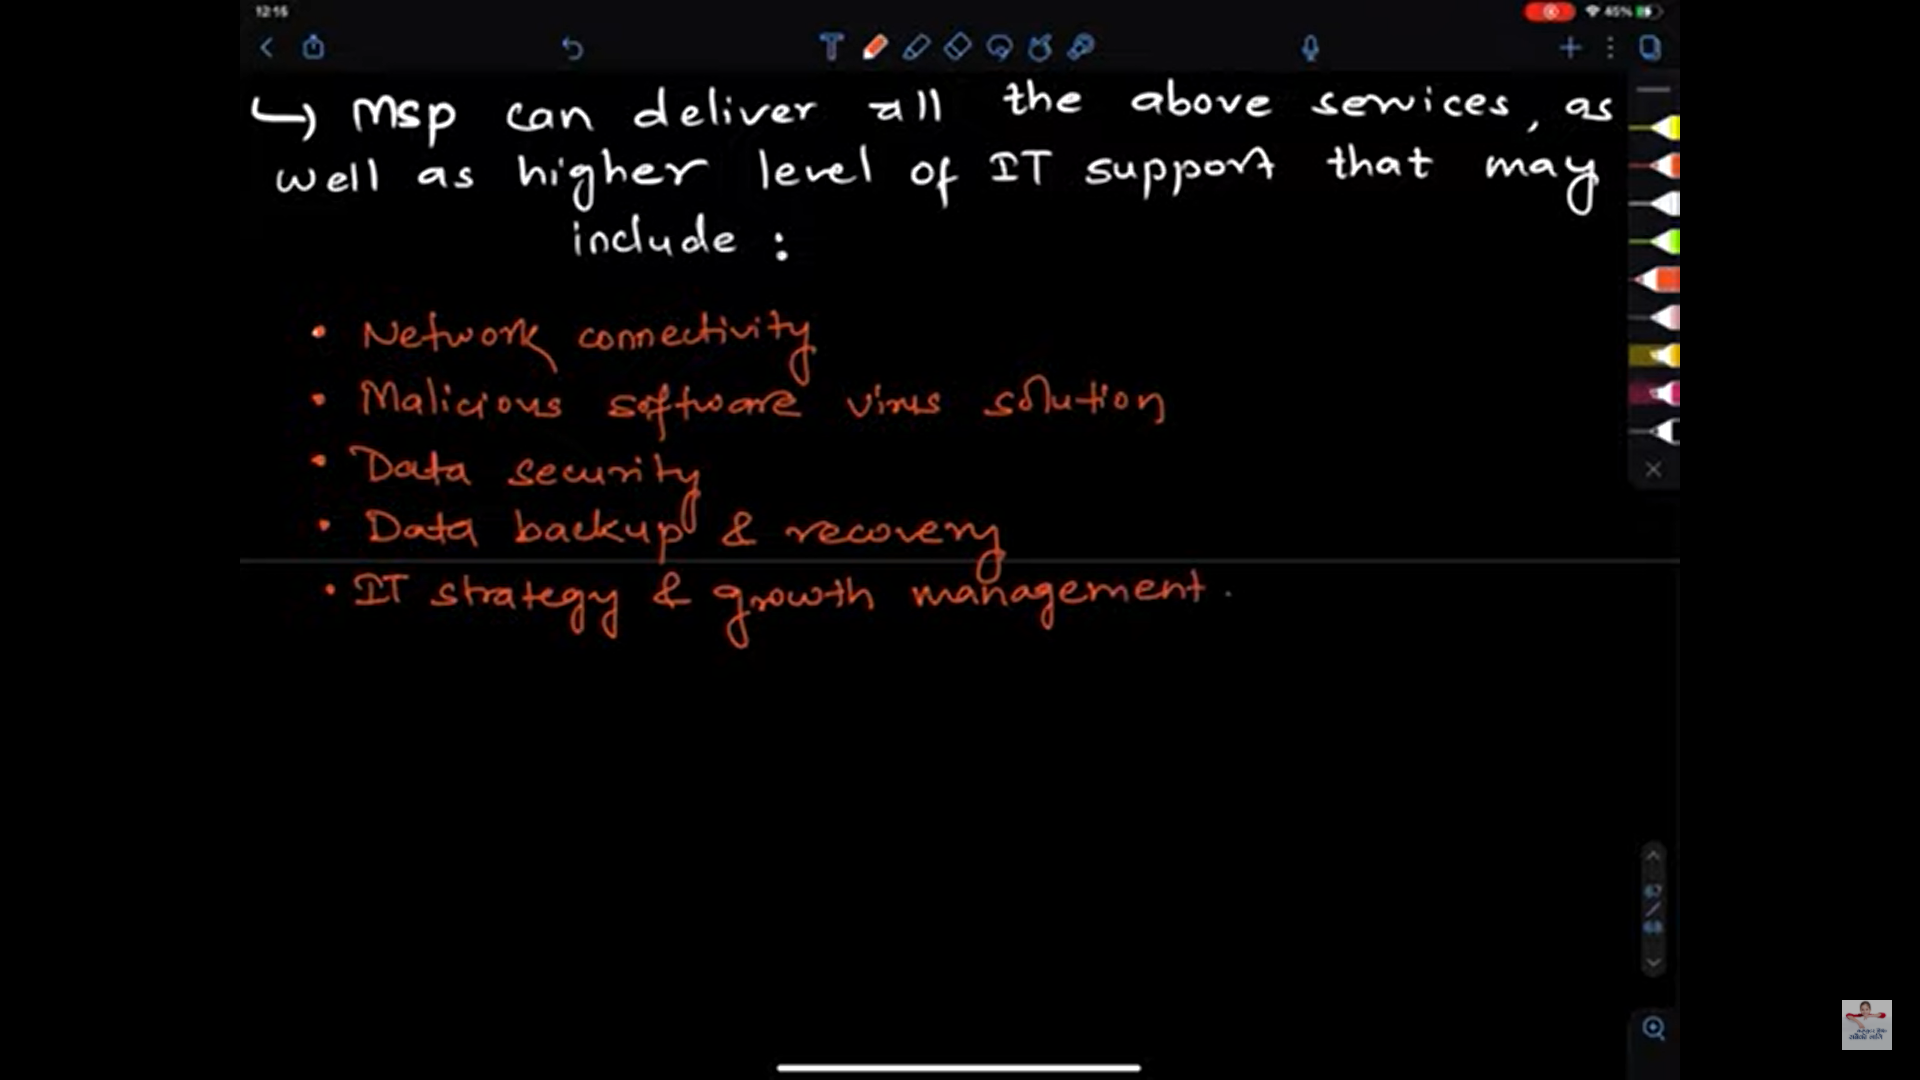 12:15
45%
↳ MSP can deliver all the above services, as
well as higher level of IT support that may
include :
• Network connectivity
• Malicious software virus solution
• Data security
• Data backup & recovery
• IT strategy & growth management.
67
/
68